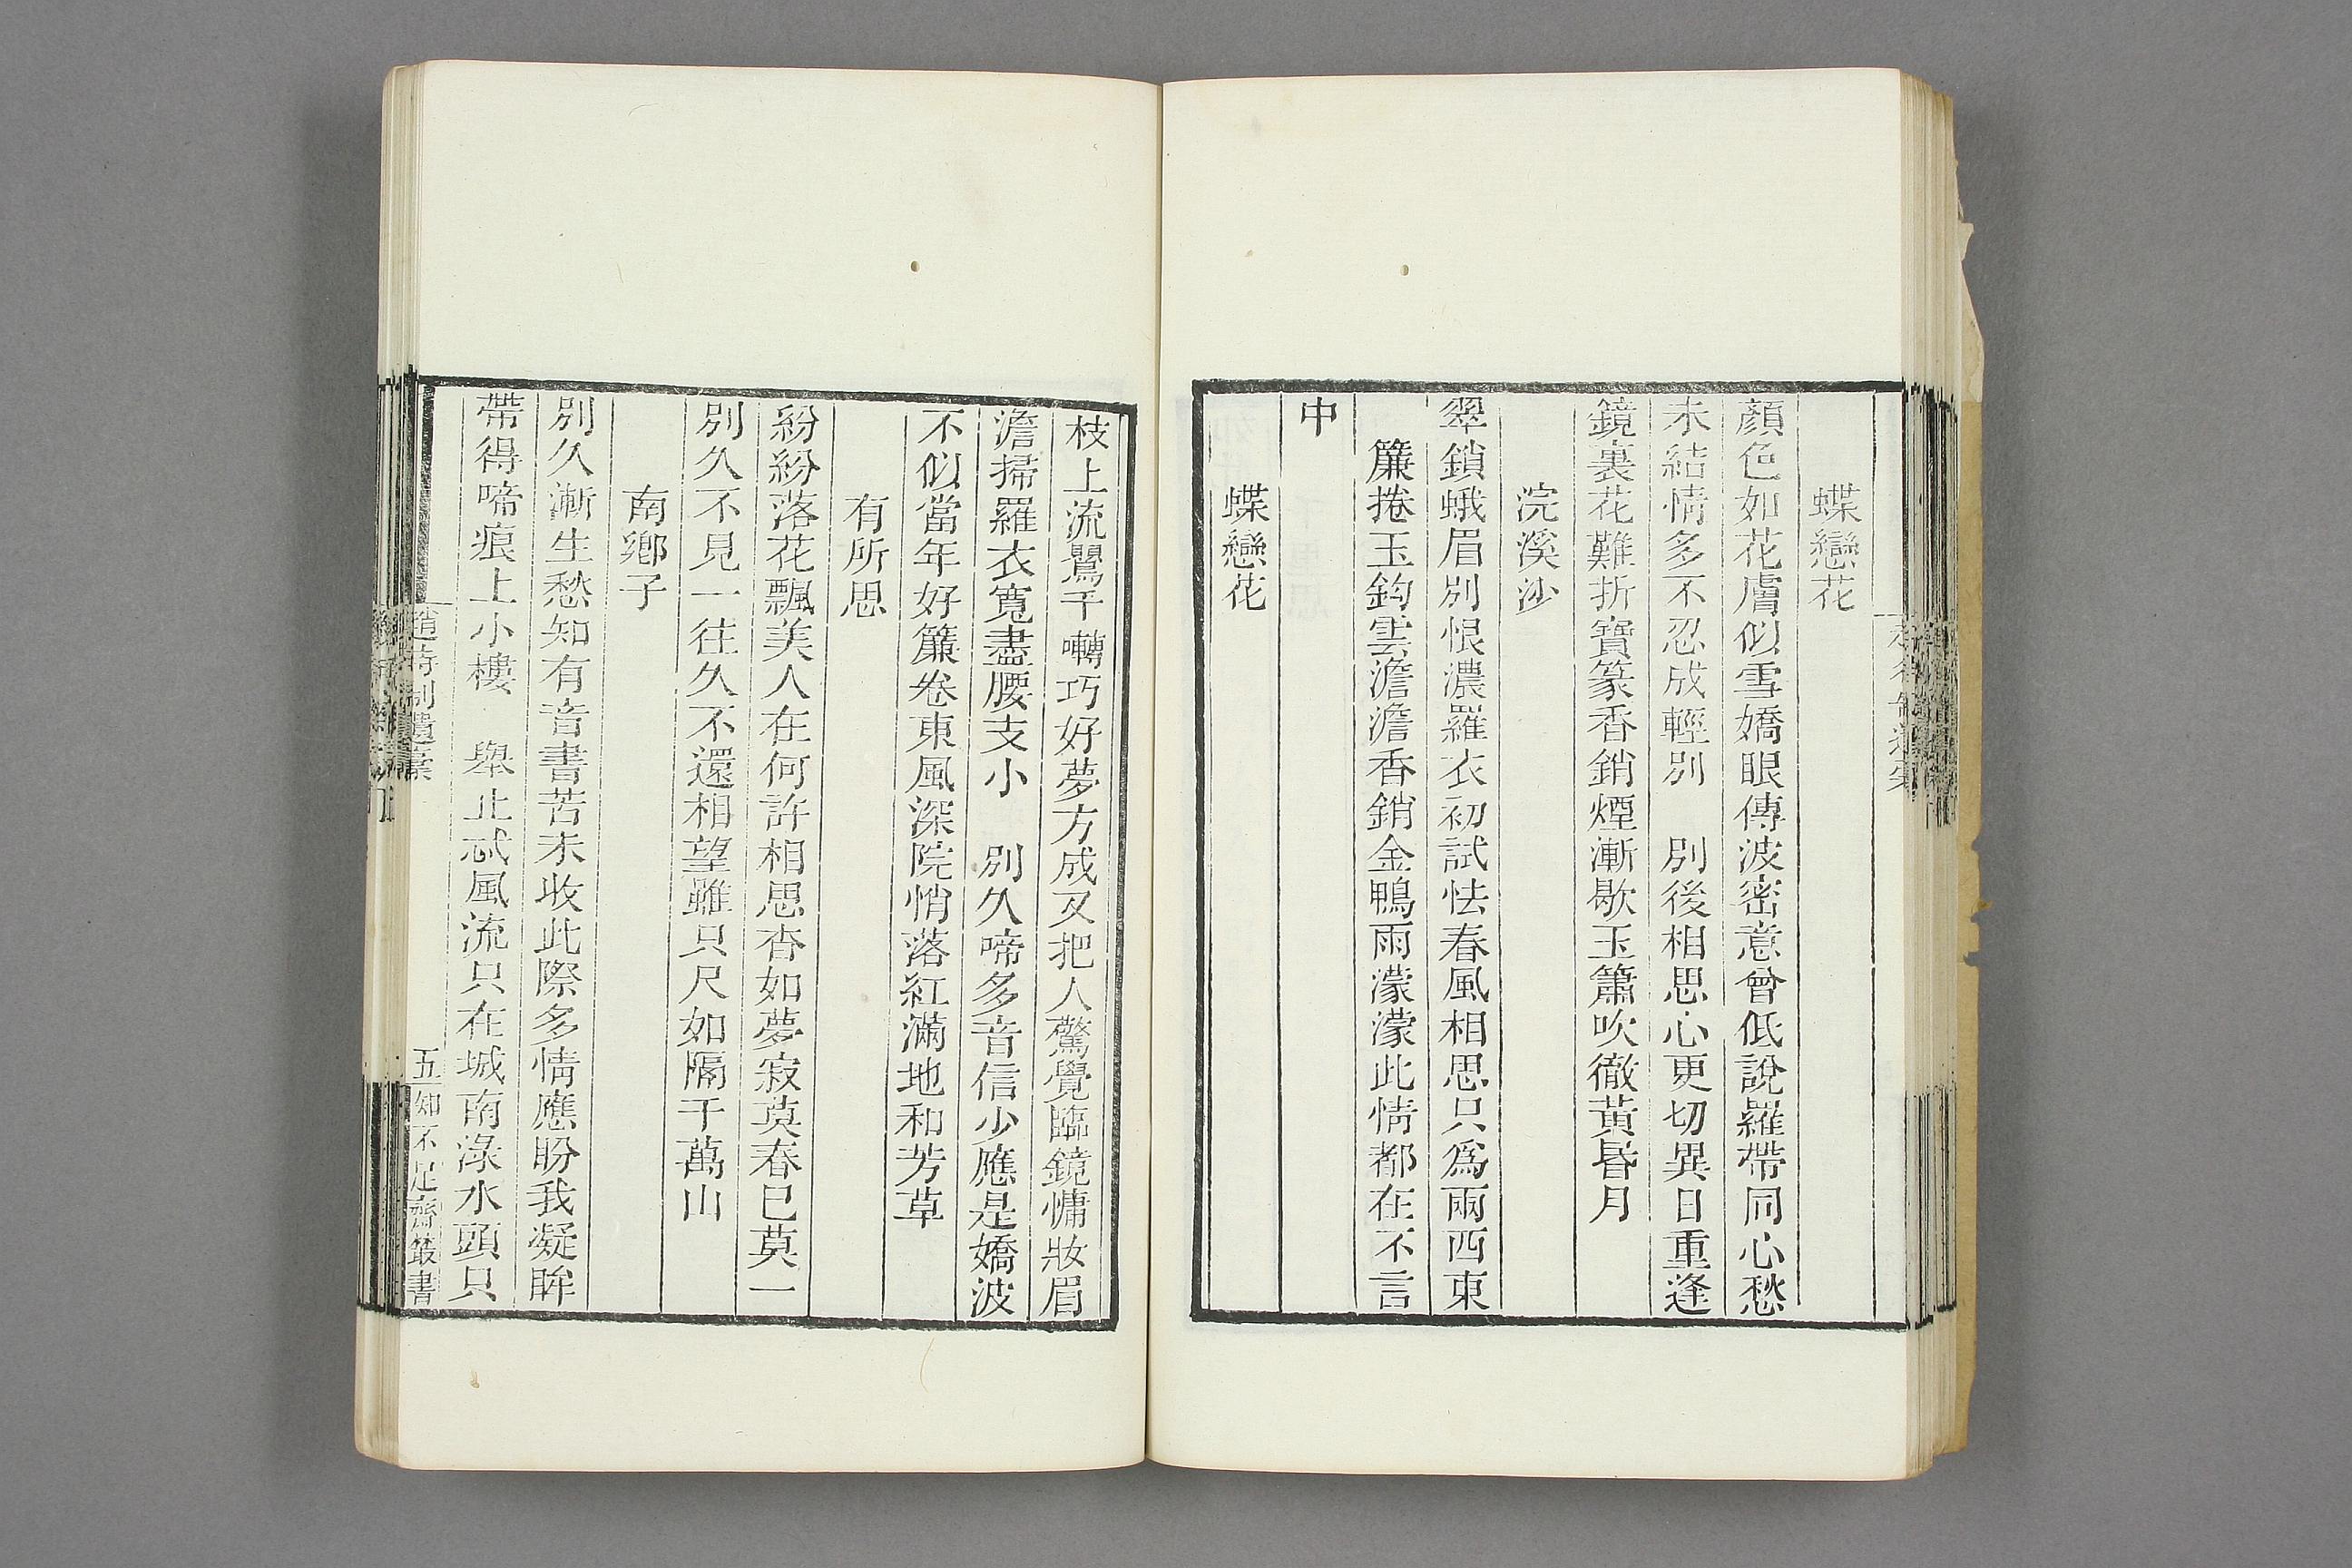 蝶戀花
顏色如花膚似雪嬌眼傳波密意曾低說羅帶同心愁
未結情多不忍成輕別　別後相思心更切異日重逢
鏡裏花難折寶篆香銷煙漸歇玉簫吹徹黃昏月
浣溪沙
翠鎖蛾眉別恨濃羅衣初試怯春風相思只爲兩西東
簾捲玉鈎雲澹澹香銷金鴨雨濛濛此情都在不言
中
蝶戀花
枝上流鶯千囀巧好夢方成又把人驚覺臨鏡慵妝眉
澹掃羅衣寬盡腰支小　別久啼多音信少應是嬌波
不似當年好簾卷東風深院悄落紅滿地和芳草
有所思
紛紛落花飄美人在何許相思杳如夢寂莫春已莫一
別久不見一往久不還相望雖只尺如隔千萬山
南鄉子
別久漸生愁知有音書苦未收此際多情應盼我凝眸
帶得啼痕上小樓　舉止忒風流只在城南淥水頭只
趙待制遺稾
五
知不足齋叢書